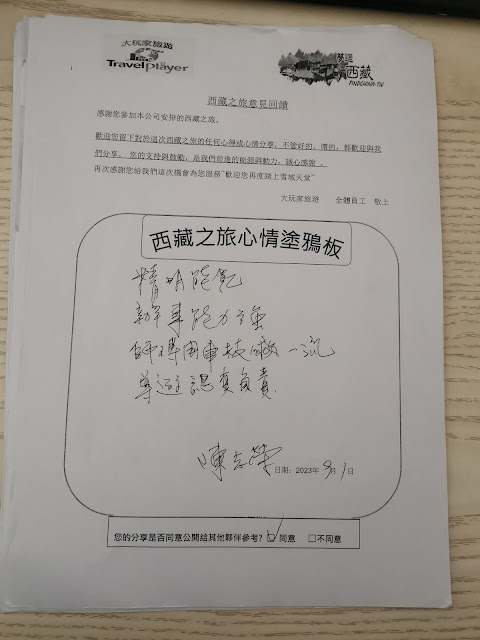 大玩家旅遊
Travelplayer
夢迴
西藏
FINDCHINA-TW
西藏之旅意見回饋
感謝您參加本公司安排的西藏之旅,
歡迎您留下對於這次西藏之旅的任何心得或心情分享,不管好的、壞的,都歡迎與我
們分享。 您的支持與鼓勵,是我們前進的能源與動力。誠心感謝 。
再次感謝您給我們這次機會為您服務"歡迎您再度踏上雪域天堂"
大玩家旅遊 全體員工 敬上
西藏之旅心情塗鴉板
精明能幹
辦事能力強
師傅開車技術一流
導遊認真負責.
陳志榮
日期:2023年9月1日
您的分享是否同意公開給其他夥伴參考? ☑ 同意 ☐不同意